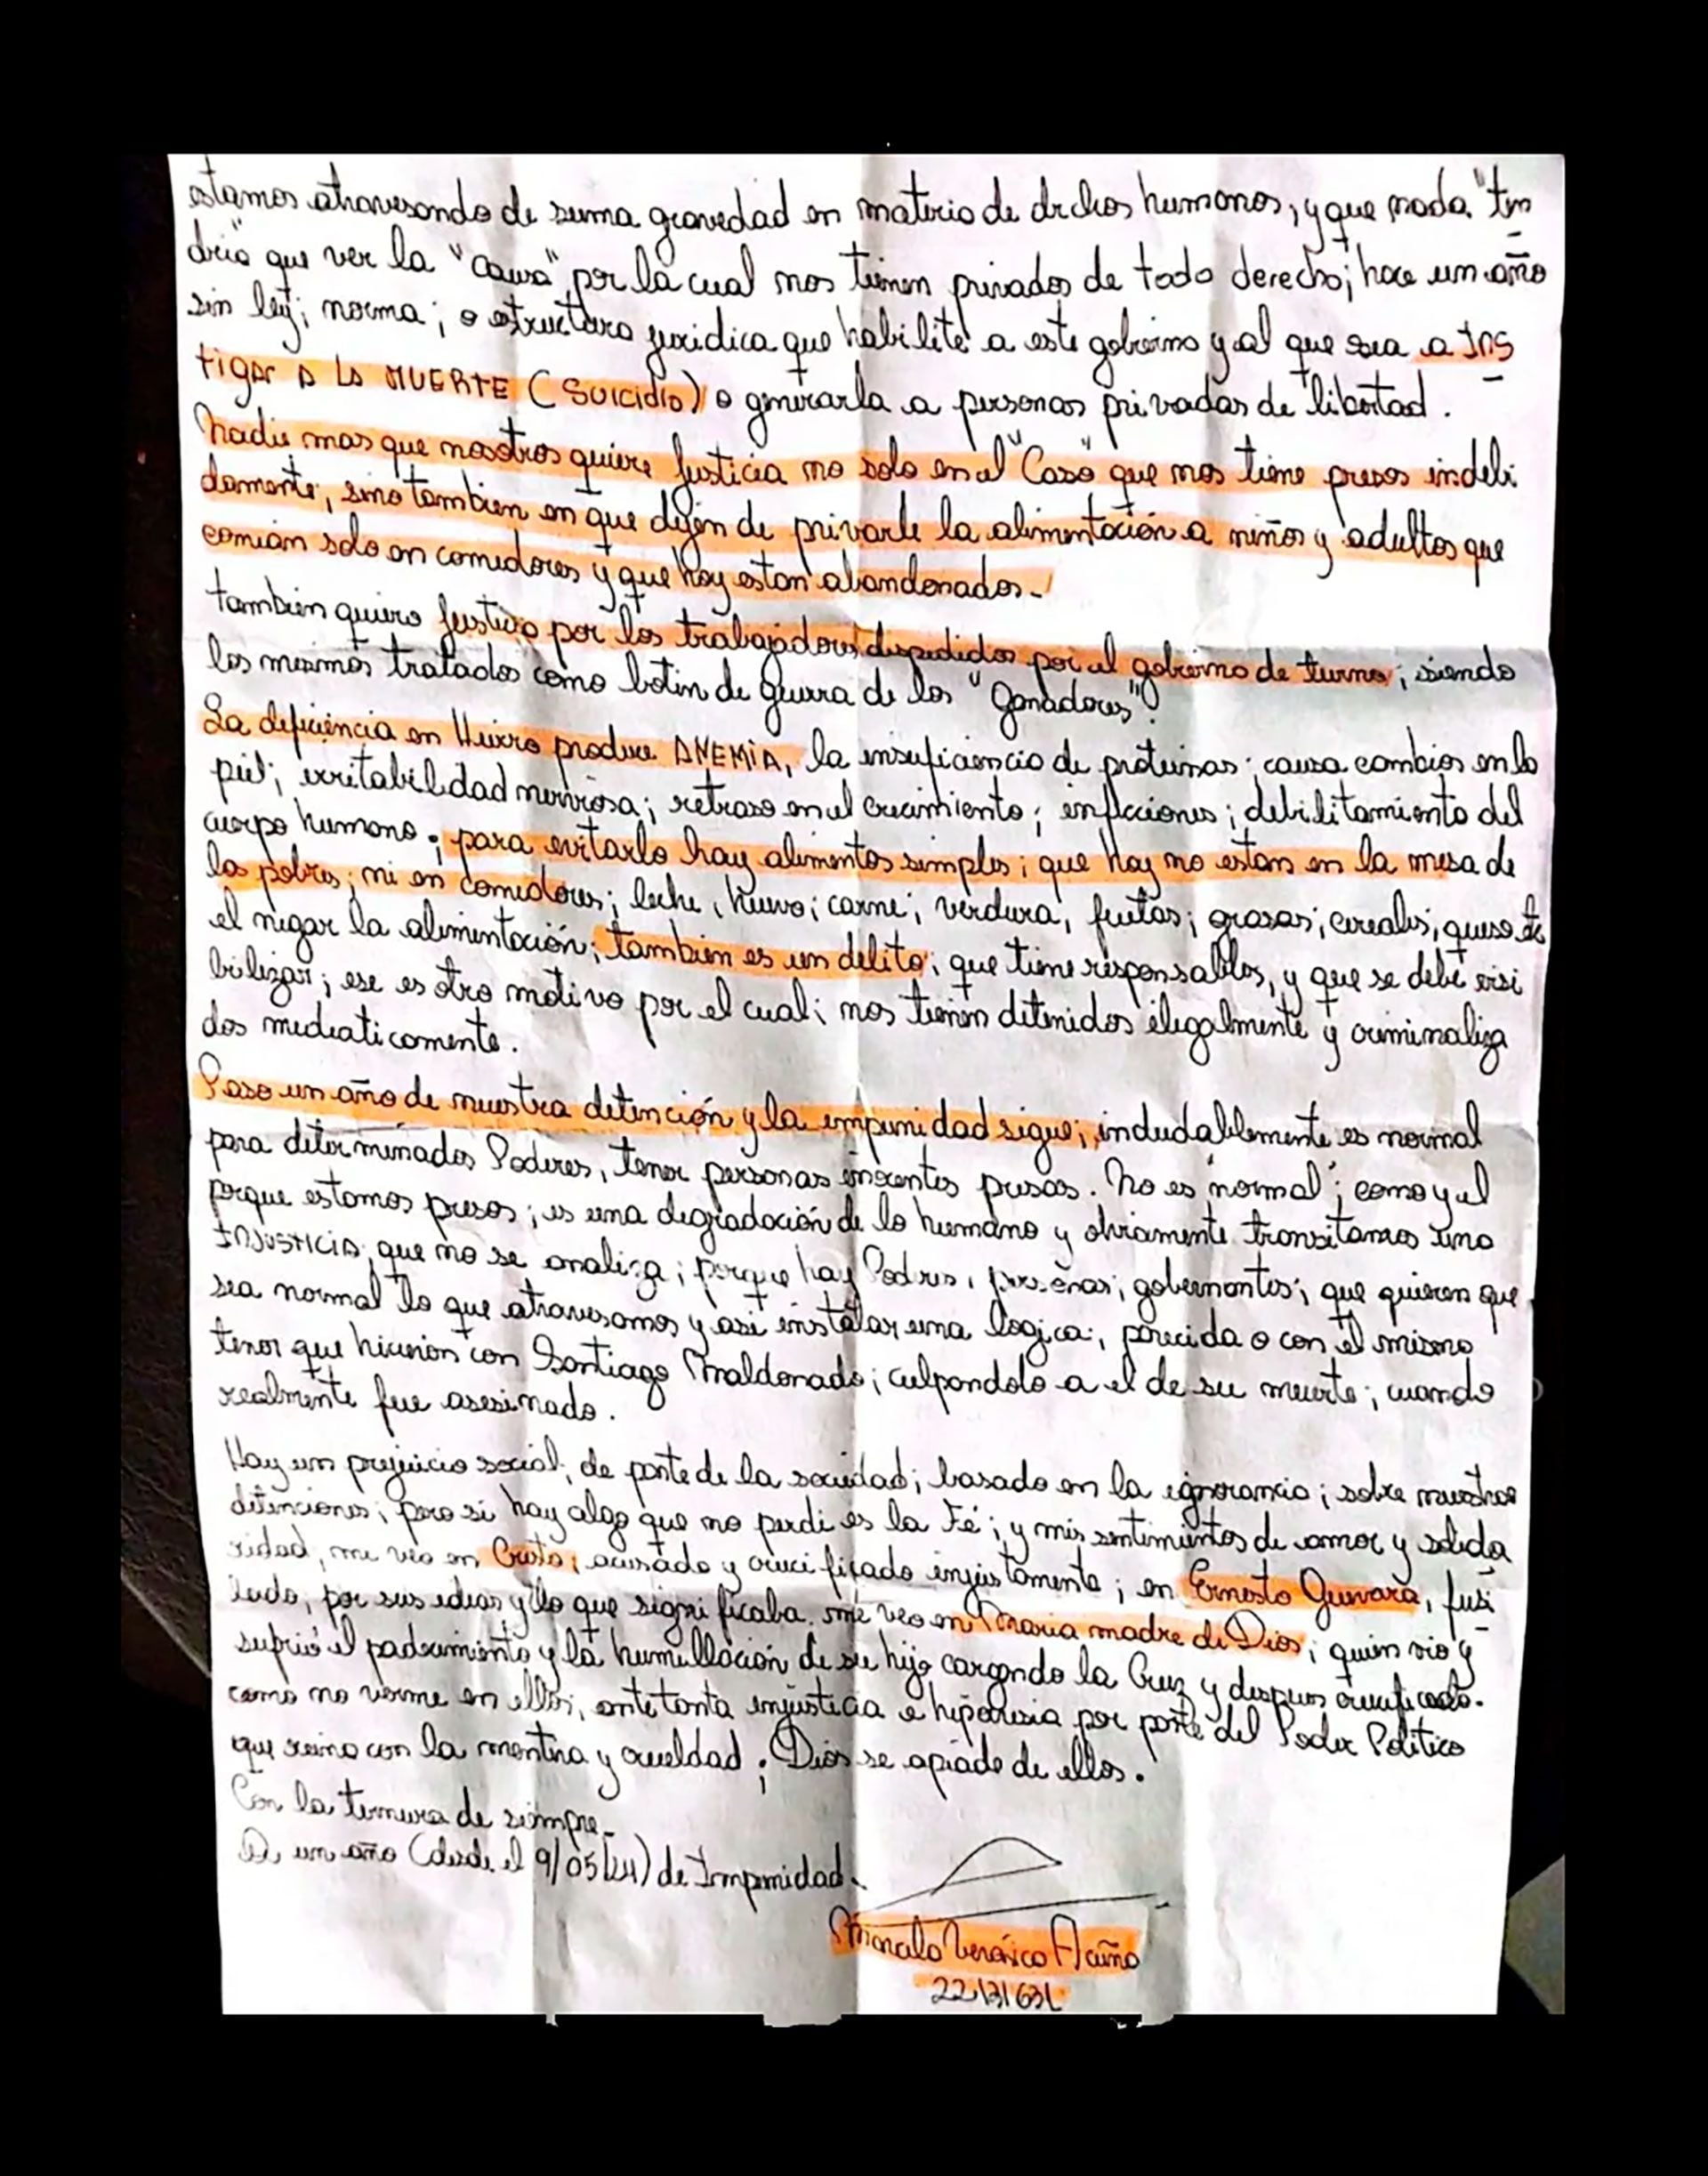 estamos atravesando de suma gravedad en materia de drchos humanos, y que nada "ten
dria" que ver la "causa" por la cual nos tienen privados de todo derecho; hace un año
sin ley; norma; o estructura juridica que habilite a este gobierno y al que sea a INS
tigar A LA MUERTE (SUICIDIO) o generarla a personas privadas de libertad.
Nadie mas que nosotros quiere Justicia no solo en el "Caso" que nos tiene presos indebi
damente, sino tambien en que dejen de privarle la alimentación a niños y adultos que
comian solo en comedores y que hoy estan abandonados.-
tambien quiero justicia por los trabajadores despedidos por el gobierno de turno; siendo
los mismos tratados como botin de guerra de los "Ganadores"!
La deficiencia en Hierro produce ANEMIA, la insuficiencia de proteinas; causa cambios en la
piel; irritabilidad nerviosa; retraso en el crecimiento; infecciones; debilitamiento del
cuerpo humano; para evitarlo hay alimentos simples; que hoy no estan en la mesa de
los pobres; ni en comedores; leche, huevo; carne; verdura; frutas; grasas; cereales; queso etc
el negar la alimentación; tambien es un delito; que tiene responsables, y que se debe visi
bilizar; ese es otro motivo por el cual; nos tienen detenidos ilegalmente y criminaliza
dos mediaticamente.
Paso un año de nuestra detención y la impunidad sigue; indudablemente es normal
para determinados Poderes, tener personas inocentes presas. No es "normal"; como y el
porque estamos presos; es una degradación de lo humano y obviamente transitamos una
INJUSTICIA; que no se analiza; porque hay Podres, personas; gobernantes; que quieren que
sea normal lo que atravesamos y asi instalar una logica; parecida o con el mismo
tenor que hicieron con Santiago Maldonado; culpandolo a el de su muerte; cuando
realmente fue asesinado.
Hay un prejuicio social; de parte de la sociedad; basado en la ignorancia; sobre nuestras
detenciones; pero si hay algo que no perdi es la Fé; y mis sentimientos de amor y solida
ridad, me veo en Cristo; acusado y crucificado injustamente; en Ernesto Guevara, fusi
lado; por sus ideas y lo que significaba. me veo en Maria madre de Dios; quien vio y
sufrió el padecimiento y la humillación de su hijo cargando la Cruz y despues crucificado.
como no verme en ellos, ante tanta injusticia e hipocresia por parte del Poder Politico
que reina con la mentira y crueldad; Dios se apiade de ellos.
Con la ternura de siempre.-
A un año (desde el 9/05/24) de Impunidad.
Veronica Acuña